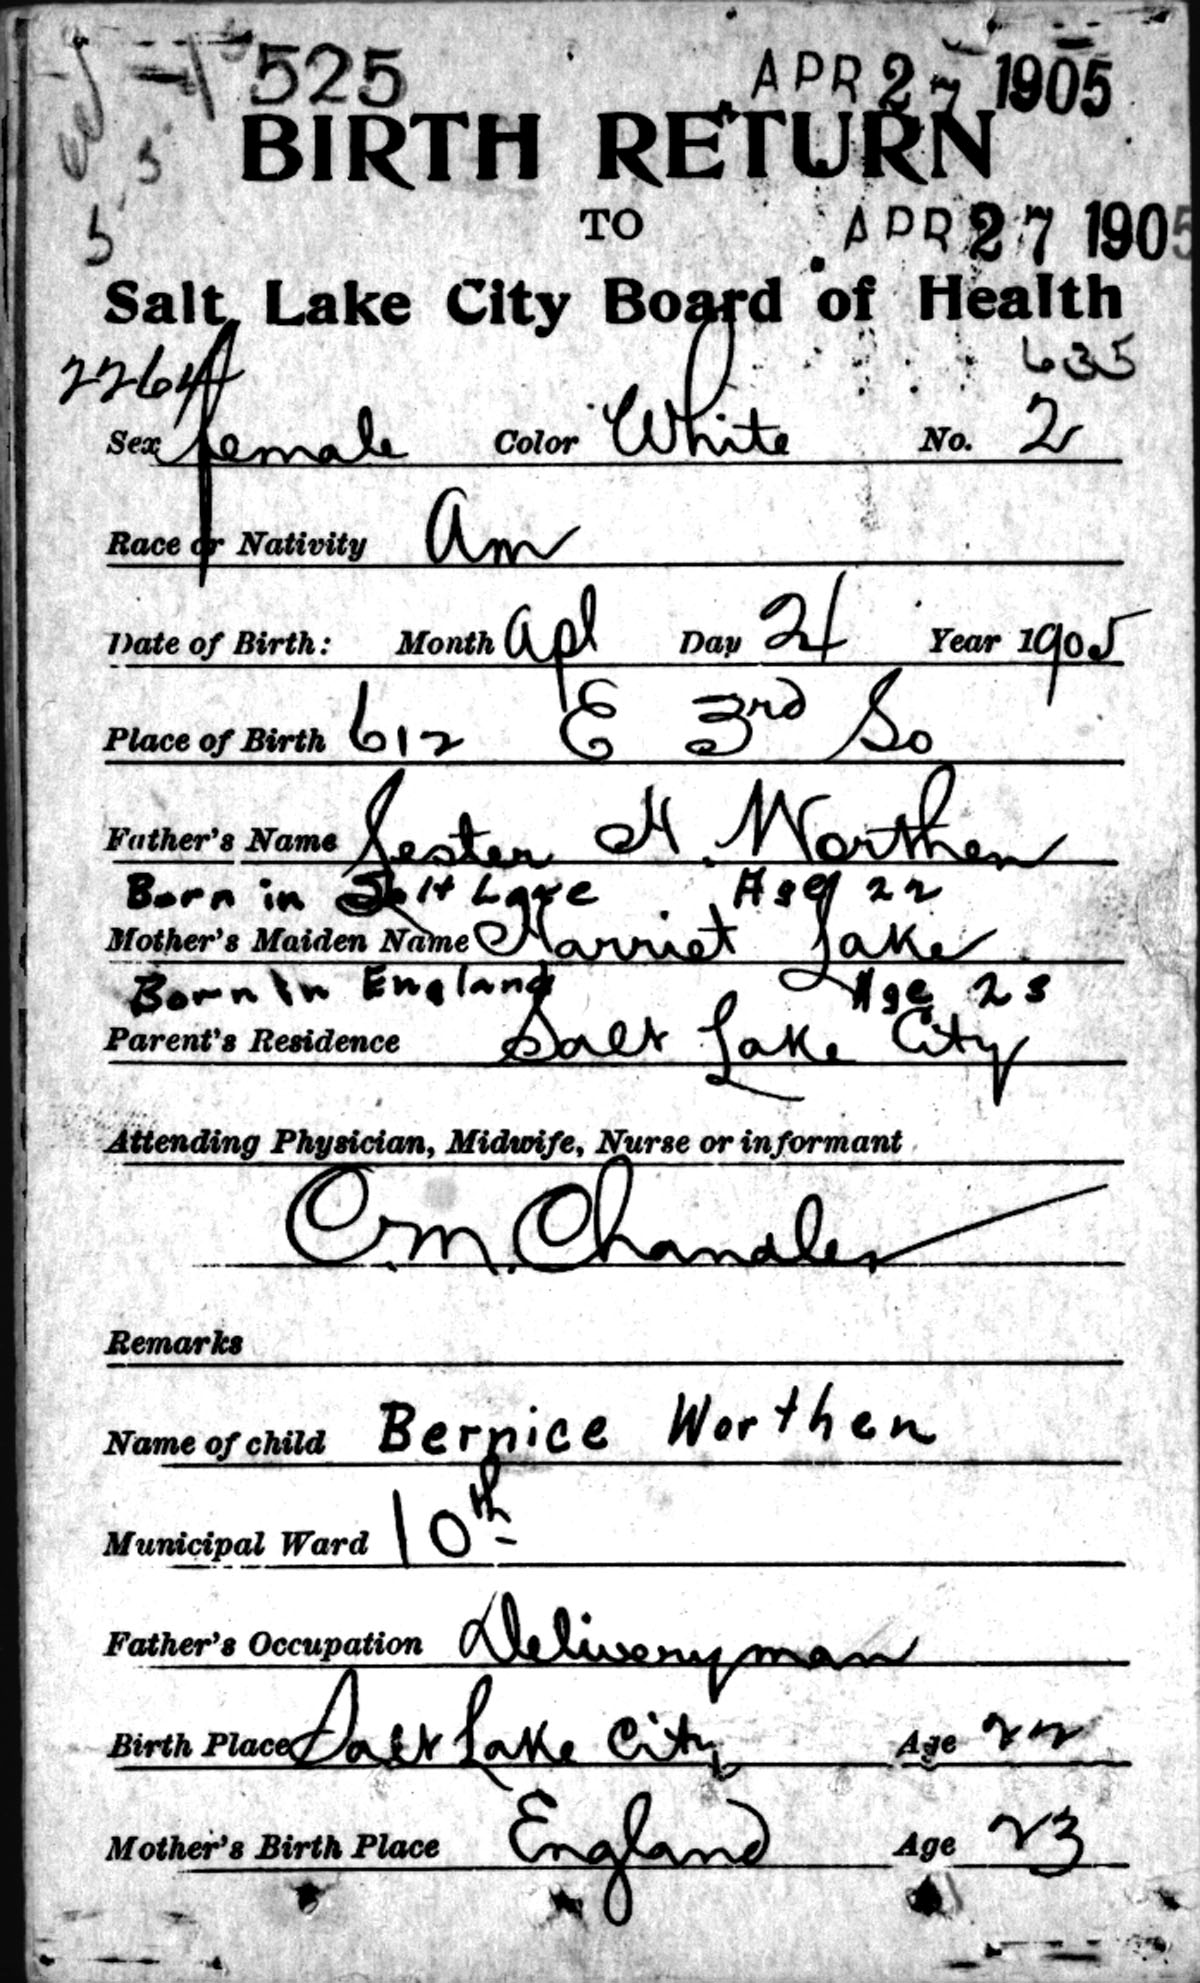 525 APR 27 1905
BIRTH RETURN
TO APR 27 1905
Salt Lake City Board of Health
2264 635
Sex female Color White No. 2
Race or Nativity Am
Date of Birth: Month Apl Day 21 Year 1905
Place of Birth 612 E 3rd So
Father's Name Lester H. Worthen
Born in Salt Lake Age 22
Mother's Maiden Name Harriet Lake
Born in England Age 23
Parent's Residence Salt Lake City
Attending Physician, Midwife, Nurse or informant
C. M. Chandler
Remarks
Name of child Bernice Worthen
Municipal Ward 10th
Father's Occupation Deliveryman
Birth Place Salt Lake City Age 22
Mother's Birth Place England Age 23